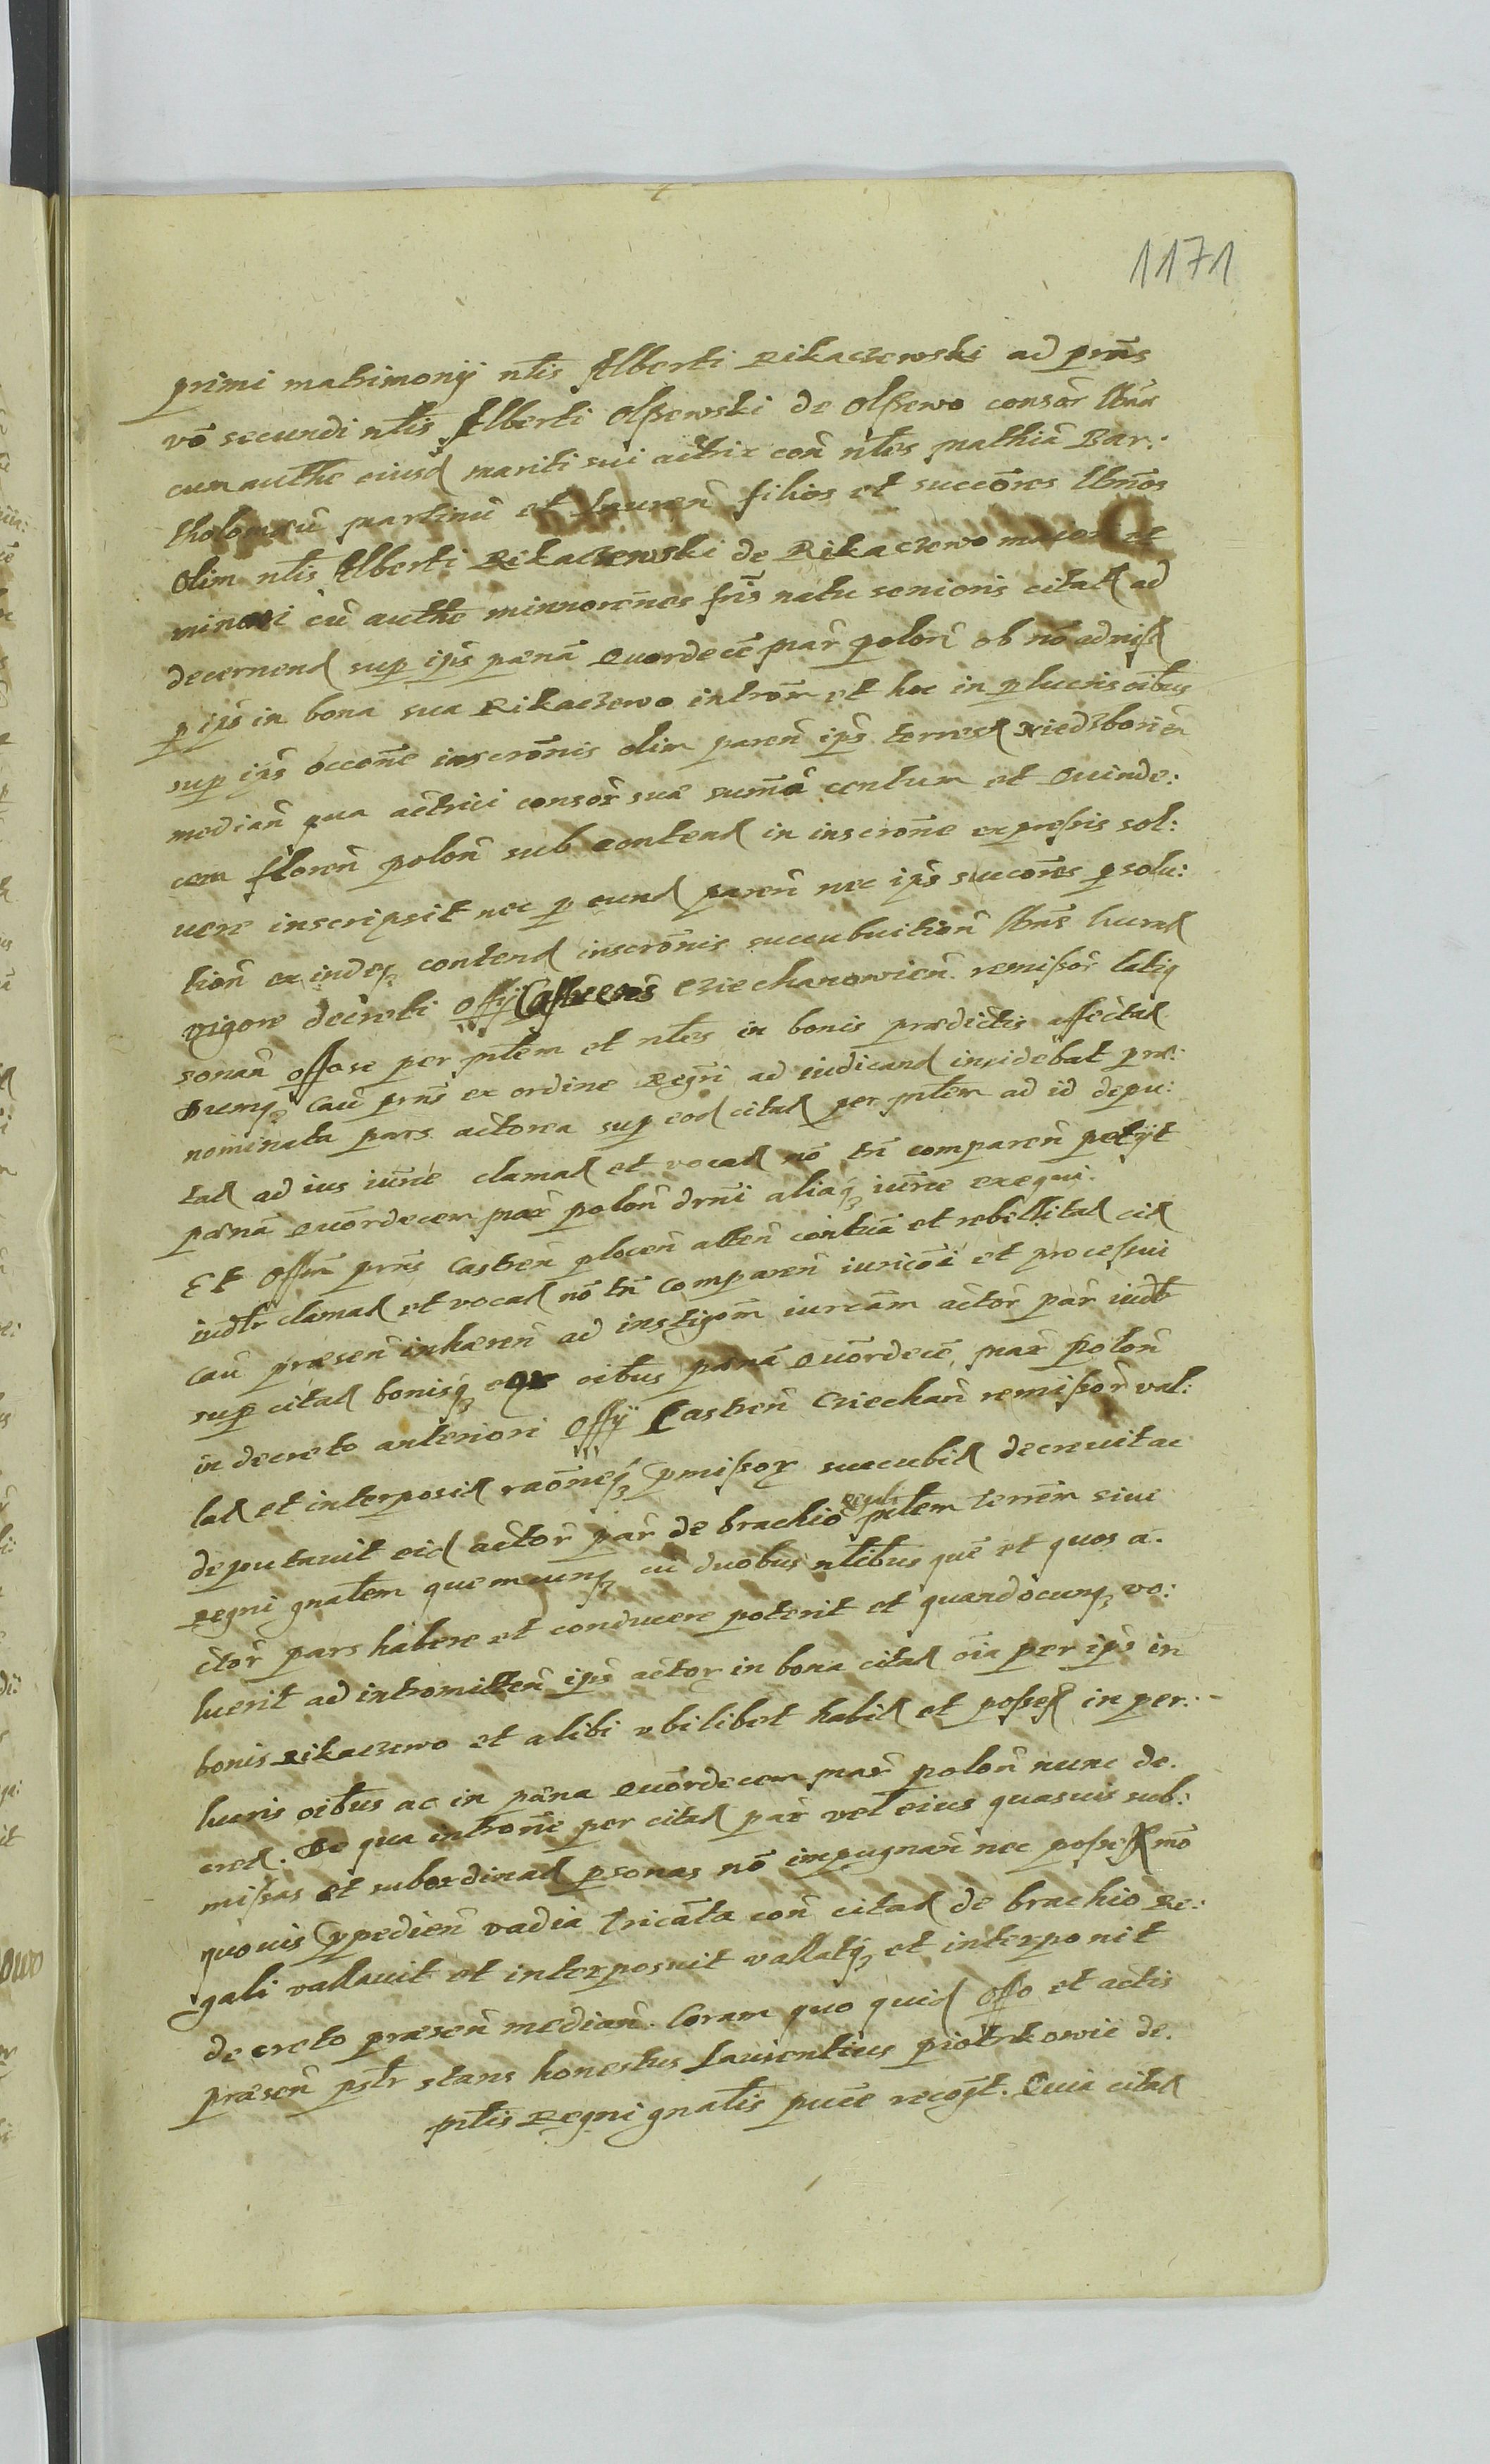 1171
primi matrimonÿ nłis Alberti Rikaczewski ad prñs
vō secundi nłis Alberti Olszewski de Olszewo consor̃ łtñа
cum authẽ eiusđ mariti sui actrix coñ nłes Mathiã Bar:
tholomeũ Martinũ et Laureñ filios et succõres łtimos
olim nłis Alberti Rikaczewski de Rikaczewo maiori et
minori cũ authẽ minnorẽnes fris natu senioris citatꝭ ad
decernendꝭ sup ip̃is pænã Quordecẽ mar̃ poloñ ob nõ admissꝭ
p ip̃s in bona sua Rikaczewo introm̃ et hæ in plucris oibus
sup ip̃is occõne inscrõnis olim pareñ ip̃s terrestꝭ Niedzborieñ
mediañ qua actrici consor̃ suæ sum̃ã centum et Quinde:
cem floreñ poloñ sub contentꝭ in inscrõne expressis sol:
uere inscripsit nec p eundꝭ pareñ nec ip̃s succõres p solu:
tioñ exindeqꝫ contentꝭ inscrõnis succubuitioñ łtñs lucratꝭ
vigore decreti Offÿ Castreñs Cziechanowieñ remissor̃ latiqꝫ
sonañ offose per młem et nłes in bonis prædictis affectatꝭ
Dumqꝫ Cau prñs ex ordine Regrĩ ad iudicandꝭ insidebat pre:
nominata pars actorea sup eod citatꝭ per młem ad id depu:
tatꝭ ad ius iurñe clamatꝭ et vocatꝭ nõ tñ compareñ petÿt
pænã Quõrdecem mar̃ poloñ drñi aliaqꝫ iurñe exequi.
Et Offm̃ prñs Castreñ Ploceñ alteñ contuã et rebellitatꝭ citꝭ
iudłr clamatꝭ et vocatꝭ nõ tñ compareñ iuricõi et processui
Cau præseñ inhæreñ ad instigom̃ iuream̃ actor̃ par̃ iudł
sup citatꝭ bonisqꝫ eor oibus pænã Quõrdecẽ mar̃ poloñ
in decreto anteriori Offÿ Castreñ Cziechañ remissor̃ val:
latꝭ et interpositꝭ raõneqꝫ pmissor̃ succubitꝭ decreuit ac
deputauit eidꝭ actor̃ par̃ de brachio regali młem terrẽm siue
Regni gnałem quemcunqꝫ cũ duobus nłibus quẽ et quos a.
ctor̃ pars habere et conducere poterit et quandocunqꝫ vo:
luerit ad intromitteñ ip̃s actor̃ in bona citatꝭ oĩa per ip̃s in
bonis Rikaczewo et alibi vbilibet habitꝭ et possessꝭ in per:
lucris oibus ac in pæna Quõrdecem mar̃ poloñ nunc de.
cretꝭ. De qua introm̃e per citatꝭ par̃ vel eius quasuis sub:
missas et subordinatꝭ psonas nõ impugnañ nec possessꝭ mõ
quouis ppedieñ vadia tricãta coñ citatꝭ de brachio Re:
gali vallauit et interposuit vallatqꝫ et interponit
decreto præseñ mediañ. Coram quo quidꝭ offo et actis
præseñ psłr stans honestus Laurentius Piotrkowic de.
młis Regni gnałis pure recogt. Quia citatꝭ